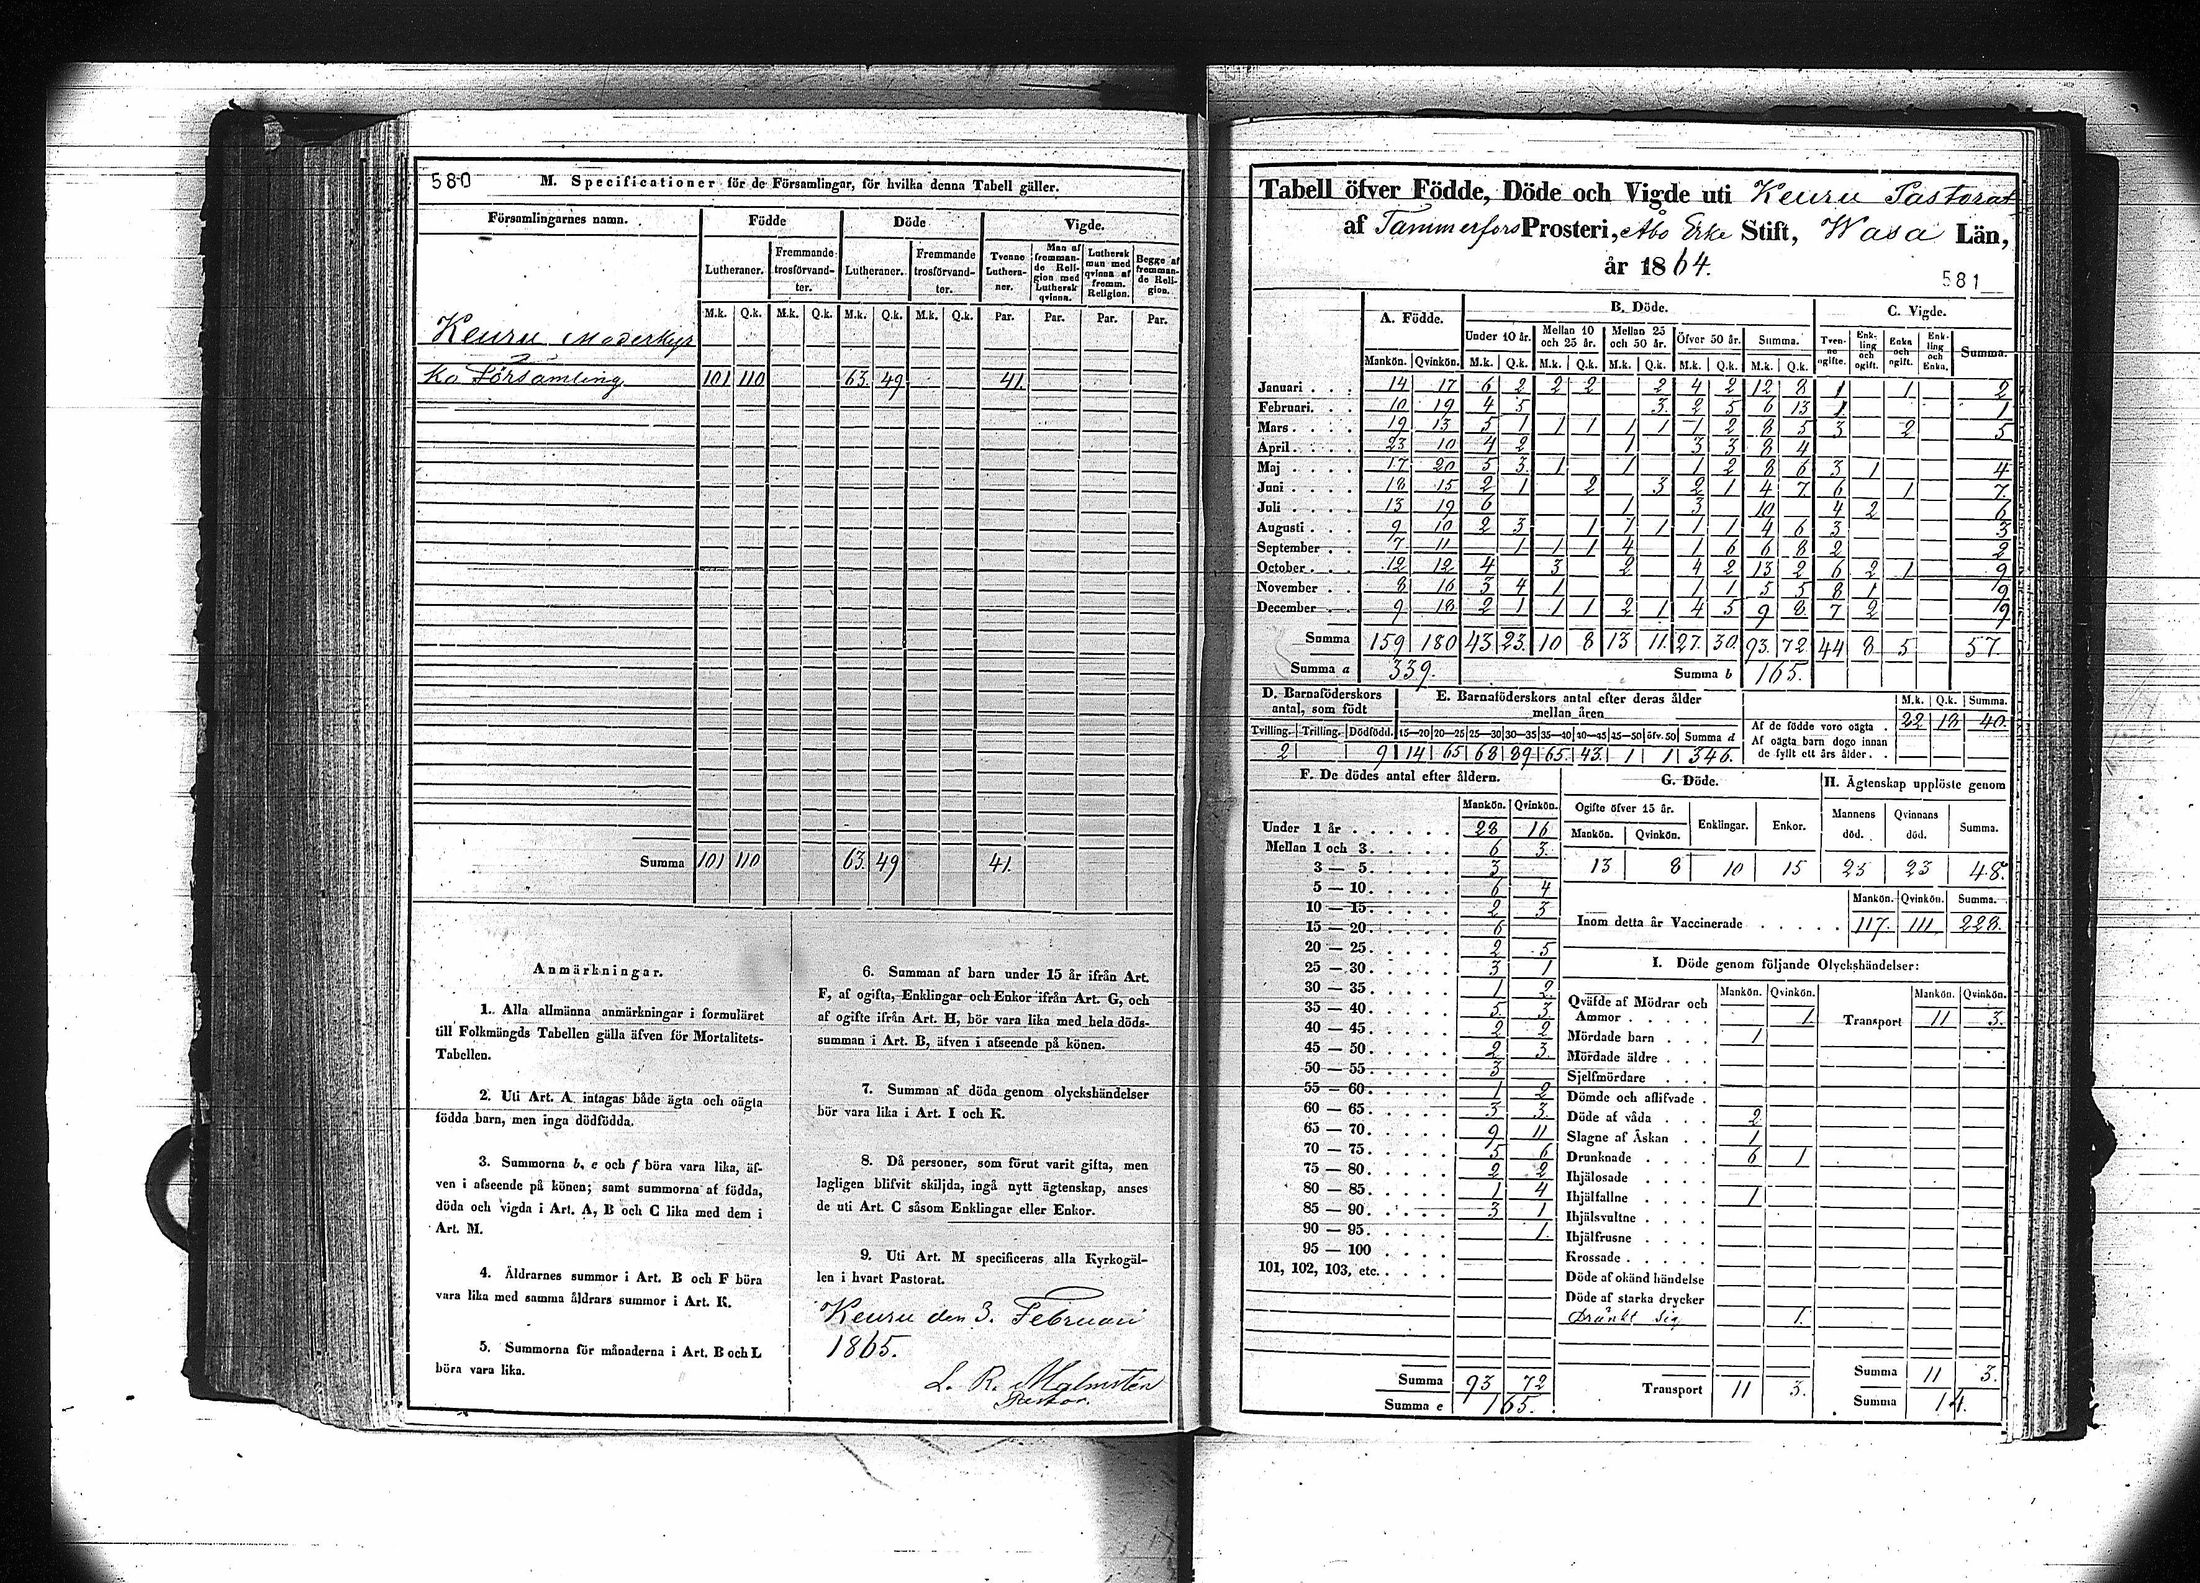 580 M. Specificationer för de Församlingar, för hvilka denna Tabell gäller.
Församlingarnes namn. Födde Döde Vigde.
Lutheraner. Fremmande trosförvandter. Lutheraner. Fremmande trosförvandter. Tvenne Lutheraner. Man af fremmande Religion med Luthersk qvinna. Luthersk man med qvinna af fremm. Religion. Begge af fremmande Religion.
M.k. Q.k. M.k. Q.k. M.k. Q.k. M.k. Q.k. Par. Par. Par. Par.
Keuru Moderkyr
ko Församling 101 110 63. 49 41.
Summa 101 110 63. 49 41.
Anmärkningar.
1. Alla allmänna anmärkningar i formuläret
till Folkmängds Tabellen gälla äfven för Mortalitets-
Tabellen.
2. Uti Art. A intagas både ägta och oägta
födda barn, men inga dödfödda.
3. Summorna b, e och f böra vara lika, äf-
ven i afseende på könen; samt summorna af födda,
döda och vigda i Art. A, B och C lika med dem i
Art. M.
4. Åldrarnes summor i Art. B och F böra
vara lika med samma åldrars summor i Art. K.
5. Summorna för månaderna i Art. B och L
böra vara lika.
6. Summan af barn under 15 år ifrån Art.
F, af ogifta, Enklingar och Enkor ifrån Art. G, och
af ogifte ifrån Art. H, bör vara lika med hela döds-
summan i Art. B, äfven i afseende på könen.
7. Summan af döda genom olyckshändelser
bör vara lika i Art. I och K.
8. Då personer, som förut varit gifta, men
lagligen blifvit skiljda, ingå nytt ägtenskap, anses
de uti Art. C såsom Enklingar eller Enkor.
9. Uti Art. M specificeras alla Kyrkogäl-
len i hvart Pastorat.
Keuru den 3. Februari
1865.
L. R. Malmstén
Pastor.
Tabell öfver Födde, Döde och Vigde uti Keuru Pastorat
af Tammerfors Prosteri, Åbo Erke Stift, Wasa Län,
år 1864.
581
A. Födde. B. Döde. C. Vigde.
Under 10 år. Mellan 10 och 25 år. Mellan 25 och 50 år. Öfver 50 år. Summa. Tvenne ogifte. Enkling och ogift. Enka och ogift. Enkling och Enka. Summa.
Mankön. Qvinkön. M.k. Q.k. M.k. Q.k. M.k. Q.k. M.k. Q.k. M.k. Q.k.
Januari 14 17 6 2 2 2 2 4 2 12 8 1 1 2
Februari. 10 19 4 5 3 2 5 6 13 1 1
Mars 19 13 5 1 1 1 1 1 1 2 8 5 3 2 5
April 23 10 4 2 1 3 3 8 4
Maj 17 20 5 3 1 1 1 2 8 6 3 1 4
Juni 18 15 2 1 2 3 2 1 4 7 6 1 7
Juli 13 19 6 1 3 10 4 2 6
Augusti 9 10 2 3 1 1 1 1 1 4 6 3 3
September 7 11 1 1 1 4 1 6 6 8 2 2
October 12 12 4 3 2 4 2 13 2 6 2 1 9
November 8 16 3 4 1 1 1 5 5 8 1 9
December 9 18 2 1 1 1 2 1 4 5 9 8 7 2 9
Summa 159 180 43 23 10 8 13 11 27 30 93 72 44 8 5 57
Summa a 339. Summa b 165.
D. Barnaföderskors antal, som födt
Tvilling. Trilling. Dödfödd.
2 9
E. Barnaföderskors antal efter deras ålder mellan åren
15—20 20—25 25—30 30—35 35—40 40—45 45—50 öfv. 50 Summa d
14 65 68 89 65 43 1 1 346.
M.k. Q.k. Summa.
Af de födde voro oägta 22 18 40.
Af oägta barn dogo innan
de fyllt ett års ålder
F. De dödes antal efter åldern.
Mankön. Qvinkön.
Under 1 år 28 16
Mellan 1 och 3 6 3.
3 — 5 3
5 — 10 6 4
10 — 15 2 3
15 — 20 6
20 — 25 2 5
25 — 30 3 1
30 — 35 1 2
35 — 40 5 3
40 — 45 2 2
45 — 50 2 3
50 — 55 3
55 — 60 1 2
60 — 65 3 3
65 — 70 9 11
70 — 75 5 6
75 — 80 2 2
80 — 85 1 4
85 — 90 3 1
90 — 95 1
95 — 100
101, 102, 103, etc.
Summa 93 72
Summa e 165.
G. Döde.
Ogifte öfver 15 år. Enklingar. Enkor.
Mankön. Qvinkön.
13 8 10 15
H. Ägtenskap upplöste genom
Mannens död. Qvinnans död. Summa.
25 23 48.
Mankön. Qvinkön. Summa.
Inom detta år Vaccinerade 117. 111 228.
I. Döde genom följande Olyckshändelser:
Mankön. Qvinkön. Mankön. Qvinkön.
Qväfde af Mödrar och
Ammor 1. Transport 11 3.
Mördade barn 1
Mördade äldre
Sjelfmördare
Dömde och aflifvade
Döde af våda 2
Slagne af Åskan 1
Drunknade 6 1
Ihjälosade
Ihjälfallne 1
Ihjälsvultne
Ihjälfrusne
Krossade
Döde af okänd händelse
Döde af starka drycker
Dränkt sig 1.
Transport 11 3. Summa 11 3.
Summa 14.